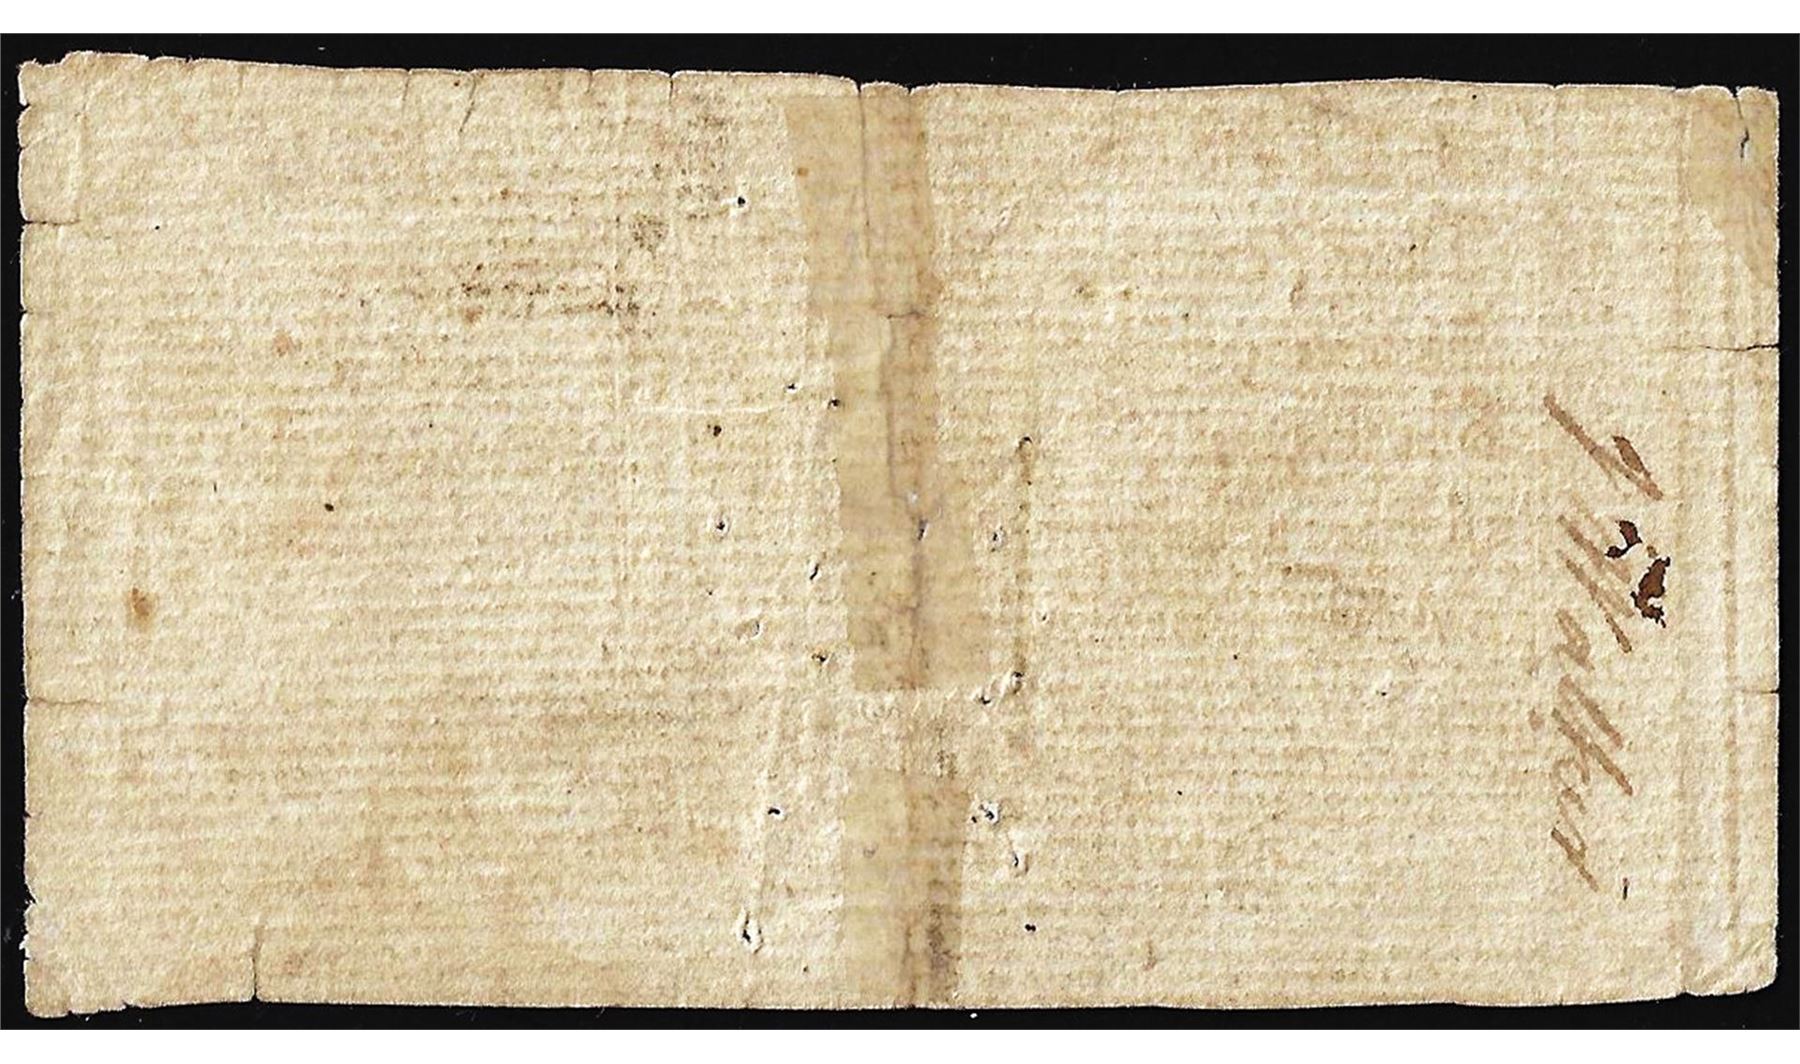 J Walker